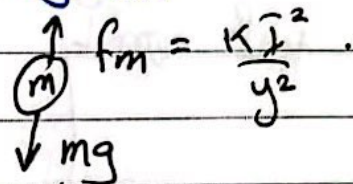 fm = K I² / y²
m
mg